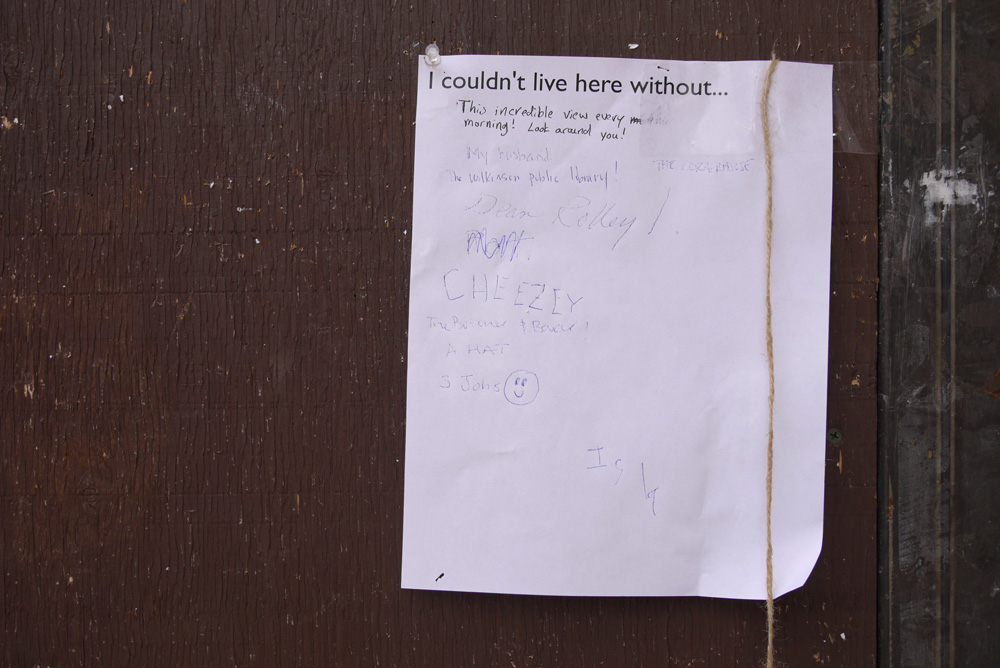 I couldn't live here without...
This incredible view every
morning! Look around you!
My husband
The Wilkinson public library!
Dean Rolley!
mom.
CHEEZLY
A HAT
3 Jobs